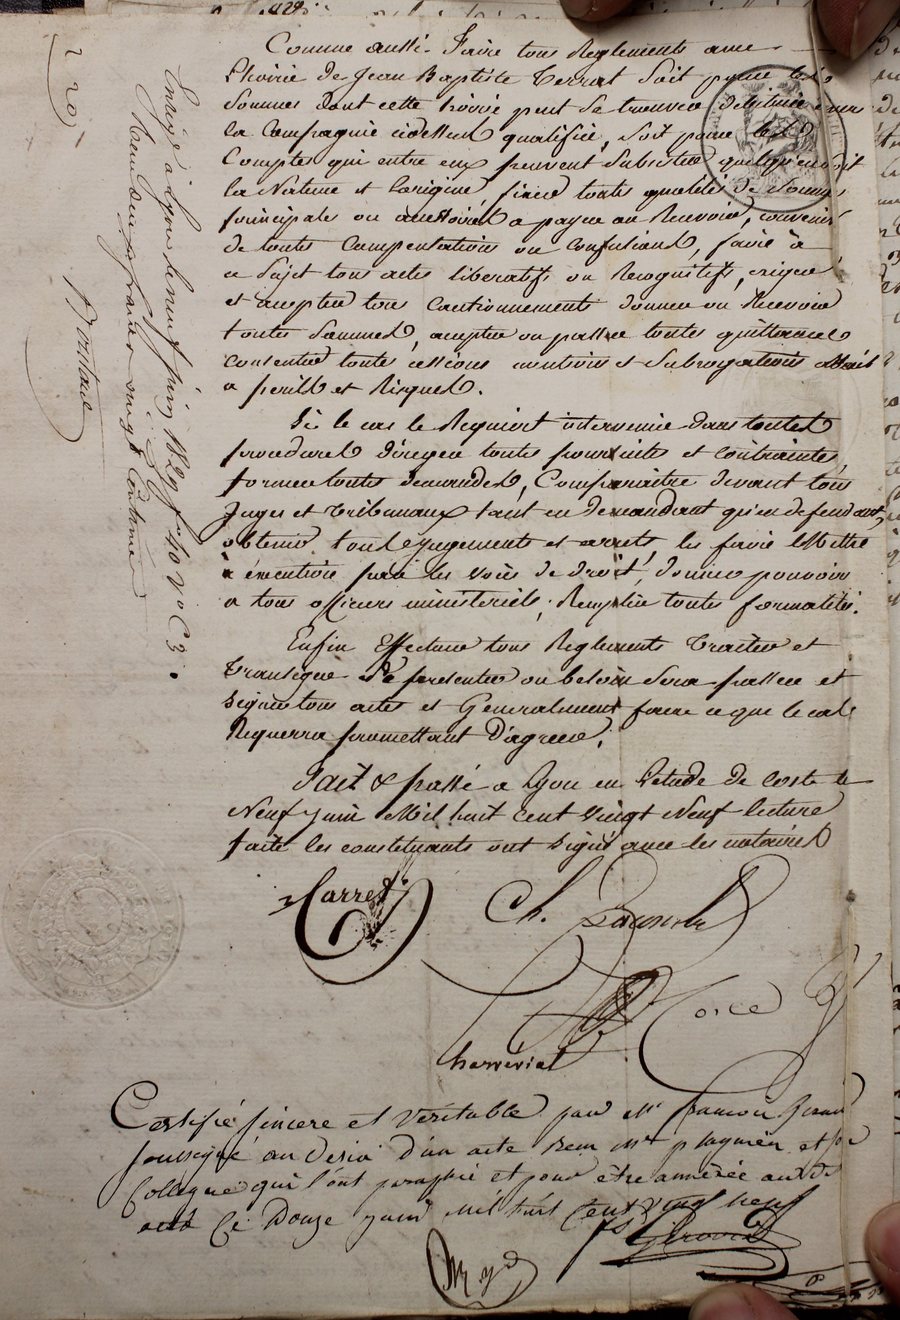 Comme aussi faire tous Reglements avec
l'hoirie de Jean Baptiste Terrat soit pour les
sommes dont cette hoirie peut se trouver débitrice envers
la Compagnie cidessus qualifiée, soit pour les
Comptes qui entre eux peuvent subsister quelqu'en soit
la Nature et l'origine, fixer toutes quotités de sommes
principales ou accessoires a payer ou Recevoir, convenir
de toutes Compensations ou confusions, faire à
ce sujet tous actes libératifs ou Recognitifs, exiger
et accepter tous Cautionnements donner ou Recevoir
toutes sommes, accepter ou passer toutes quittances
consentir toutes cessions mentions et subrogations
a perils et Risques.
Si le cas le Requiert intervenir dans toutes
procedures diriger toutes poursuites et contraintes,
former toutes demandes, Comparaitre devant tous
Juges et tribunaux tant en demandant qu'en defendant,
obtenir tous jugements et arrets les faire Mettre
à exécution par les voies de droit, donner pouvoirs
a tous officiers ministeriels, Remplir toutes formalités.
Enfin Effectuer tous Reglements Traiter et
transiger Se presenter ou besoin sera passer et
signer tous actes et Generalement faire ce que le cas
Requerra promettant d'agreer.
Fait & passé a Lyon en l'etude de Coste le
Neuf juin Mil huit cent vingt Neuf lecture
faite les constituants ont signé avec les notaires
Carret Ch.
Coste
Charvériat
Certifié sincere et véritable par Mr françois Giroud
soussigné au desir d'un acte recu Mre et son
Collegue qui l'ont paraphé et pour être annexée audit
acte Ce Douze juin Mil huit Cent vingt neuf
fs Giroud
Enrg à Lyon le neuf juin 1829 fo 40 Vo C 3.
Reçu deux francs vingt centimes